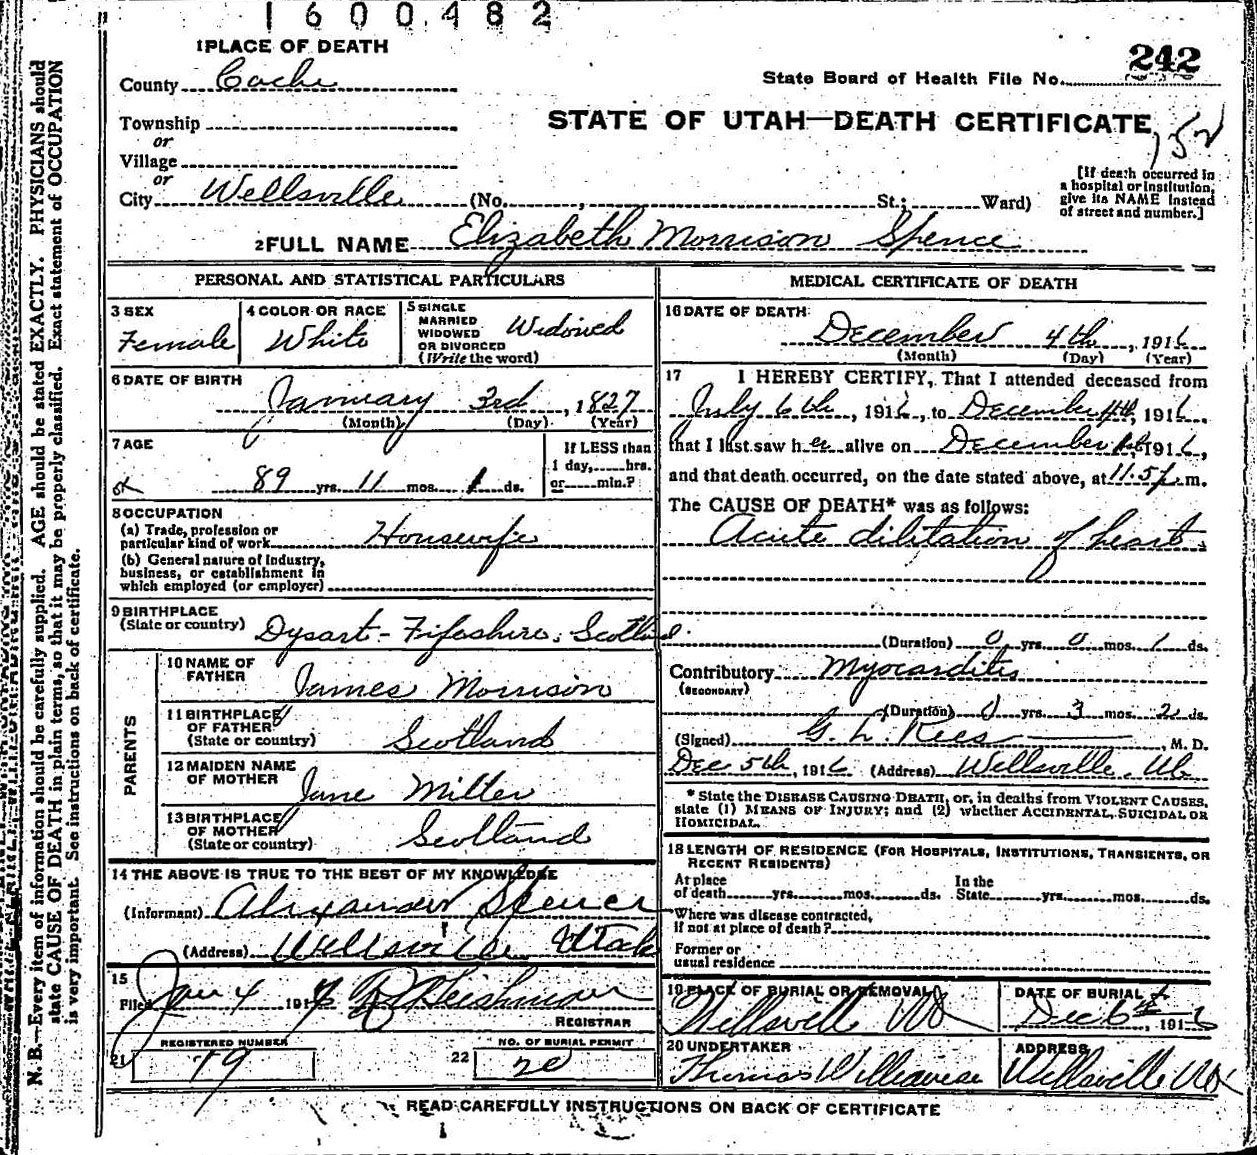 1600482
1 PLACE OF DEATH
County Cache
Township
or
Village
or
City Wellsville (No. , St.; Ward)
242
State Board of Health File No.
STATE OF UTAH—DEATH CERTIFICATE
152
[If death occurred in
a hospital or institution,
give its NAME instead
of street and number.]
2 FULL NAME Elizabeth Morrison Spence
PERSONAL AND STATISTICAL PARTICULARS
3 SEX
Female
4 COLOR OR RACE
White
5 SINGLE
MARRIED
WIDOWED
OR DIVORCED
(Write the word)
Widowed
6 DATE OF BIRTH
January 3rd, 1827
(Month) (Day) (Year)
7 AGE
89 yrs. 11 mos. 1 ds.
If LESS than
1 day, hrs.
or min.?
8 OCCUPATION
(a) Trade, profession or
particular kind of work Housewife
(b) General nature of industry,
business, or establishment in
which employed (or employer)
9 BIRTHPLACE
(State or country) Dysart - Fifeshire, Scotland.
PARENTS
10 NAME OF
FATHER
James Morrison
11 BIRTHPLACE
OF FATHER
(State or country) Scotland
12 MAIDEN NAME
OF MOTHER
Jane Miller
13 BIRTHPLACE
OF MOTHER
(State or country) Scotland
14 THE ABOVE IS TRUE TO THE BEST OF MY KNOWLEDGE
(Informant) Alexander Spence
(Address) Wellsville Utah
15
Filed Jan 4 191
REGISTRAR
21
REGISTERED NUMBER
79
22
NO. OF BURIAL PERMIT
20
MEDICAL CERTIFICATE OF DEATH
16 DATE OF DEATH
December 4th, 1916
(Month) (Day) (Year)
17 I HEREBY CERTIFY, That I attended deceased from
July 6th, 1916, to December 4th, 1916,
that I last saw her alive on December 1916,
and that death occurred, on the date stated above, at 11.5 p.m.
The CAUSE OF DEATH* was as follows:
Acute dilitation of heart.
(Duration) 0 yrs. 0 mos. 1 ds.
Contributory Myocarditis
(SECONDARY)
(Duration) 0 yrs. 3 mos. 2 ds.
(Signed) G. L. Rees, M. D.
Dec 5th, 1916 (Address) Wellsville, Ut
* State the DISEASE CAUSING DEATH, or, in deaths from VIOLENT CAUSES,
state (1) MEANS OF INJURY; and (2) whether ACCIDENTAL, SUICIDAL OR
HOMICIDAL.
18 LENGTH OF RESIDENCE (FOR HOSPITALS, INSTITUTIONS, TRANSIENTS, OR
RECENT RESIDENTS)
At place
of death yrs. mos. ds.
In the
State yrs. mos. ds.
Where was disease contracted,
if not at place of death?
Former or
usual residence
19 PLACE OF BURIAL OR REMOVAL
Wellsville Ut
DATE OF BURIAL
Dec 6th, 1916
20 UNDERTAKER
Thomas
ADDRESS
Wellsville Ut
READ CAREFULLY INSTRUCTIONS ON BACK OF CERTIFICATE
N. B.—Every item of information should be carefully supplied. AGE should be stated EXACTLY. PHYSICIANS should
state CAUSE OF DEATH in plain terms, so that it may be properly classified. Exact statement of OCCUPATION
is very important. See instructions on back of certificate.